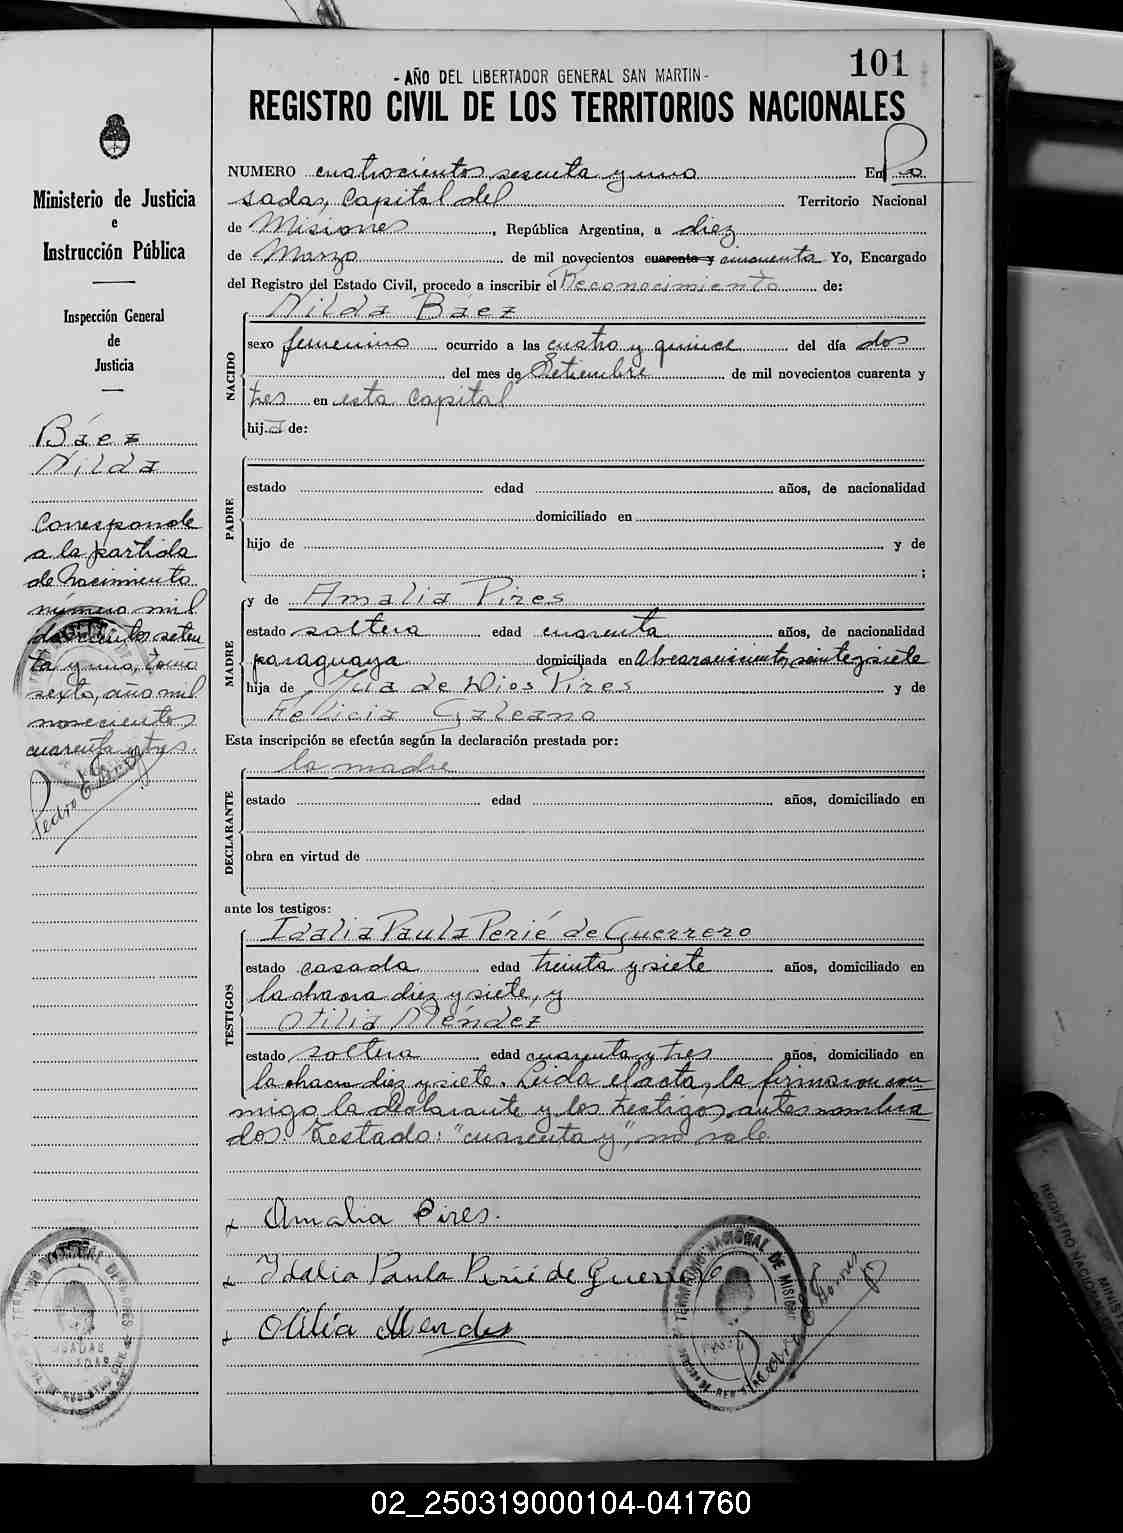 101
- AÑO DEL LIBERTADOR GENERAL SAN MARTIN-
REGISTRO CIVIL DE LOS TERRITORIOS NACIONALES
Ministerio de Justicia
e
Instrucción Pública
Inspección General
de
Justicia
Báez
Nilda
Corresponde
a la partida
de Nacimiento
número mil
doscientos seten
ta y uno, tomo
sexto, año mil
novecientos
cuarenta y tres.
NUMERO cuatrocientos sesenta y uno En Po
sadas, Capital del Territorio Nacional
de Misiones, República Argentina, a diez
de Marzo de mil novecientos cuarenta y cincuenta Yo, Encargado
del Registro del Estado Civil, procedo a inscribir el Reconocimiento de:
Nilda Báez
NACIDO
sexo femenino ocurrido a las cuatro y quince del día dos
del mes de Setiembre de mil novecientos cuarenta y
tres en esta capital
hija de:
PADRE
estado edad años, de nacionalidad
domiciliado en
hijo de y de
;
y de Amalia Pires
MADRE
estado soltera edad cuarenta años, de nacionalidad
paraguaya domiciliada en veintisiete
hija de de Dios Pires y de
Felicia Galeano
Esta inscripción se efectúa según la declaración prestada por:
la madre
DECLARANTE
estado edad años, domiciliado en
obra en virtud de
ante los testigos:
Idalia Paula Perié de Guerrero
TESTIGOS
estado casada edad treinta y siete años, domiciliado en
la chacra diez y siete, y
Otilia Méndez
estado soltera edad cuarenta y tres años, domiciliado en
la chacra diez y siete. Leida el acta, la firmaron con
migo la declarante y los testigos antes nombra
dos. Testado: "cuarenta y", no vale
Amalia Pires.
Idalia Paula Perié de Guerrero
Otilia Mendes
TERRITORIO NACIONAL DE MISIONES
REGISTRO NACIONAL
02_250319000104-041760